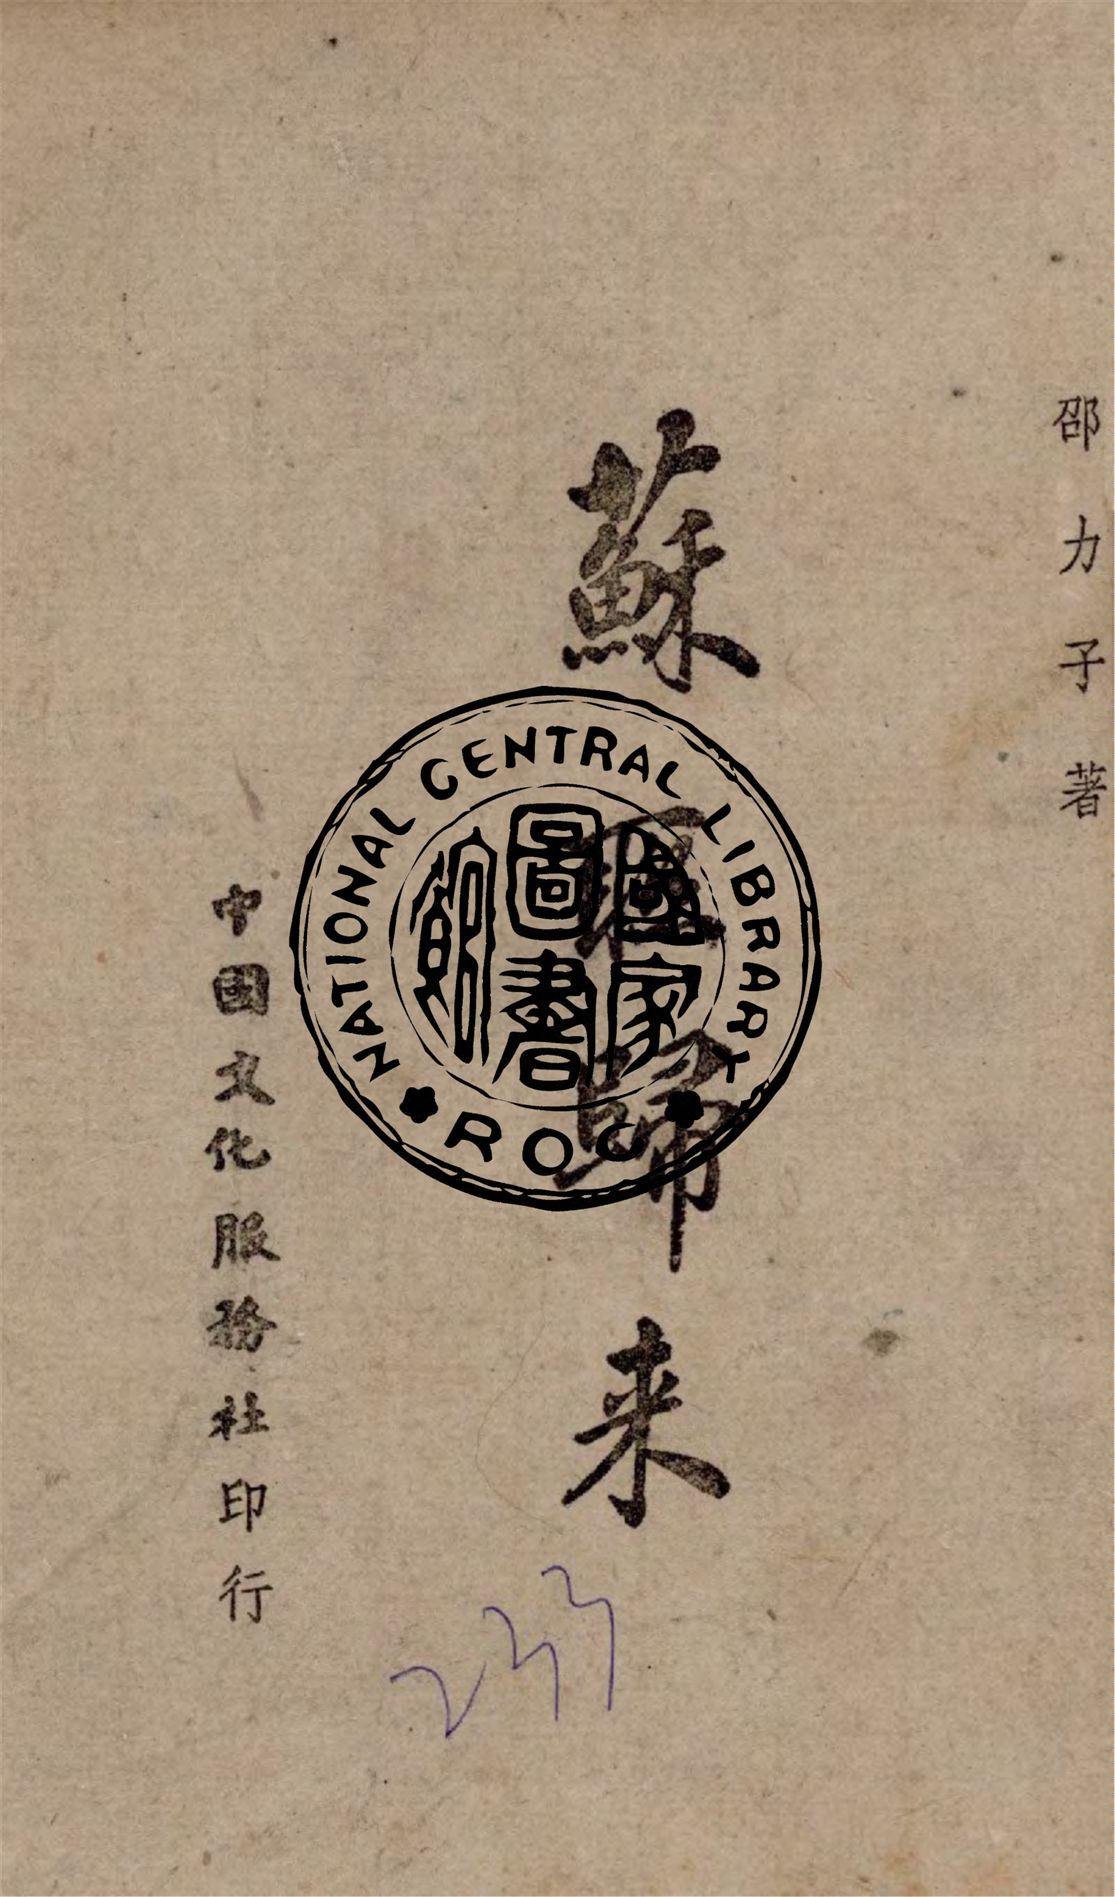 邵力子著
蘇聯歸来
中國文化服務社印行
NATIONAL CENTRAL LIBRARY
ROC
國家
圖書
館